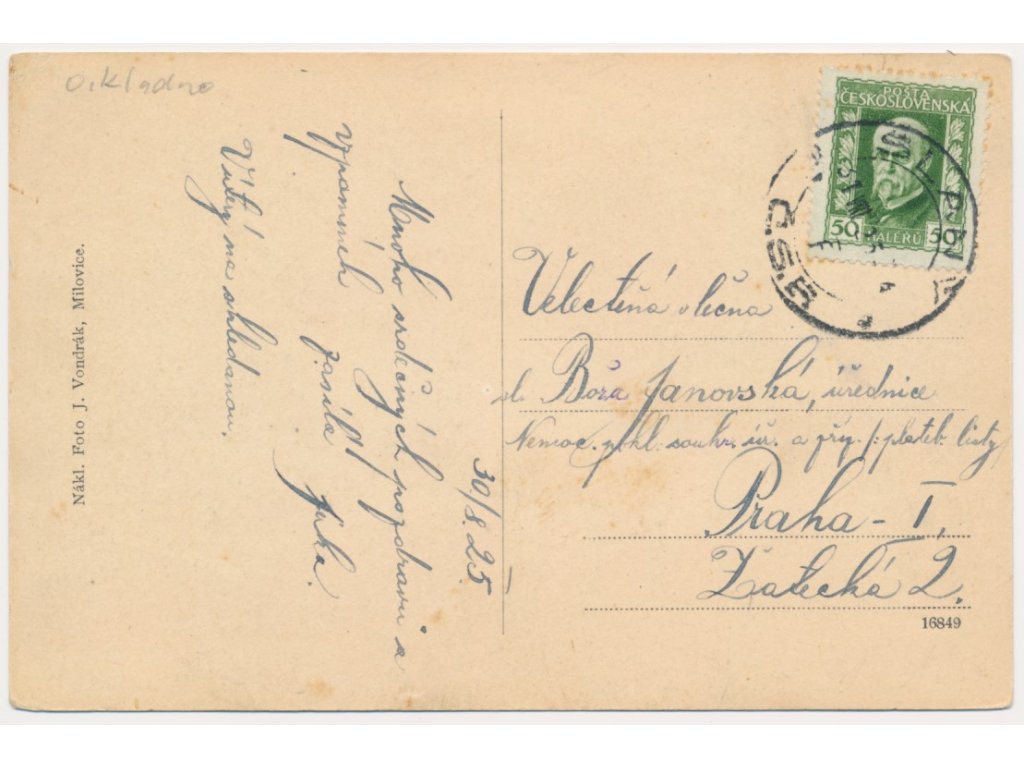 o.kladno
30/8.25
Mnoho srdečných pozdravů a
vzpomínek zasílá
Jirka.
Vítězi na shledanou.
Nákl. Foto J. Vondrák, Milovice.
POŠTA
ČESKOSLOVENSKÁ
50 HALÉŘŮ 50
Velectěná slečna
sl. Boža Janovská, úřednice
Nemoc. pokl. soukr. úř. a
Praha - I,
Žatecká 2.
16849